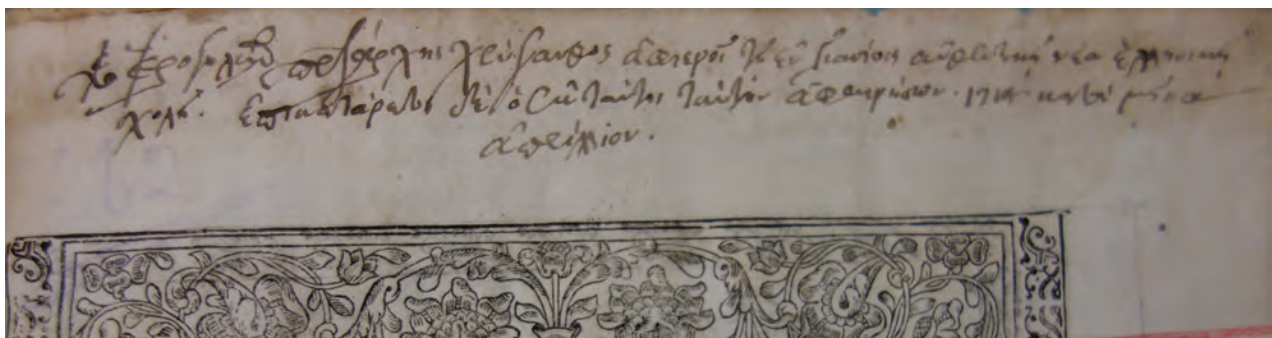 Ἱεροσολύμων πατριάρχης Χρύσανθος ἀφιεροῖ τῇ ἐν Γιασίοις αὐθεντικῇ νέᾳ ἑλληνικῇ
σχολῇ. ἐπικατάρατος δὲ ὁ ἐκ ταύτης ταύτην ἀφαιρήσων. κατὰ μῆνα
ἀπρίλλιον.